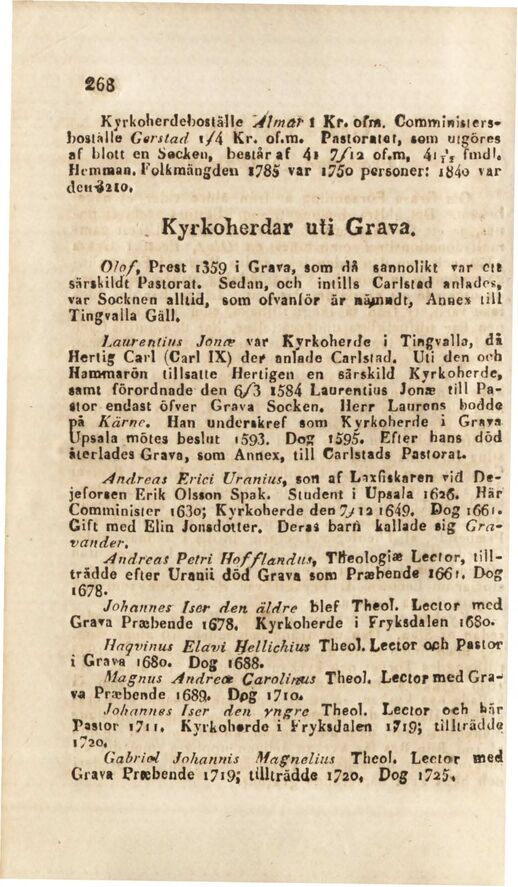 268
Kyrkoherdeboställe Almar 1 Kr. ofm. Comministers-
boställe Gerstad 1/4 Kr. of.m. Pastoratet, som utgöres
af blott en Socken, består af 41 7/12 of.m, fmdl.
Hemman. Folkmängden 1785 var 1750 personer: 1840 var
den 3210.
Kyrkoherdar uti Grava.
Olof, Prest 1359 i Grava, som då sannolikt var ett
särskildt Pastorat. Sedan, och intills Carlstad anlades,
var Socknen alltid, som ofvanför är nämndt, Annex till
Tingvalla Gäll.
Laurentius Jonæ var Kyrkoherde i Tingvalla, då
Hertig Carl (Carl IX) der anlade Carlstad. Uti den och
Hammarön tillsatte Hertigen en särskild Kyrkoherde,
samt förordnade den 6/3 1584 Laurentius Jonæ till Pa-
stor endast öfver Grava Socken. Herr Laurens bodde
på Kärne. Han underskref som Kyrkoherde i Grava
Upsala mötes beslut 1593. Dog 1595. Efter hans död
återlades Grava, som Annex, till Carlstads Pastorat.
Andreas Erici Uranius, son af Laxfiskaren vid De-
jeforsen Erik Olsson Spak. Student i Upsala 1626. Här
Comminister 1630; Kyrkoherde den 7/12 1649. Dog 1661.
Gift med Elin Jonsdotter. Deras barn kallade sig Gra-
vander.
Andreas Petri Hofflandus, Theologiæ Lector, till-
trädde efter Uranii död Grava som Præbende 1661. Dog
1678.
Johannes Iser den äldre blef Theol. Lector med
Grava Præbende 1678. Kyrkoherde i Fryksdalen 1680.
Haqvinus Elavi Hellichius Theol. Lector och Pastor
i Grava 1680. Dog 1688.
Magnus Andreæ Carolinus Theol. Lector med Gra-
va Præbende 1689. Dog 1710.
Johannes Iser den yngre Theol. Lector och här
Pastor 1711. Kyrkoherde i Fryksdalen 1719; tillträdde
1720.
Gabriel Johannis Magnelius Theol. Lector med
Grava Præbende 1719; tillträdde 1720, Dog 1725.